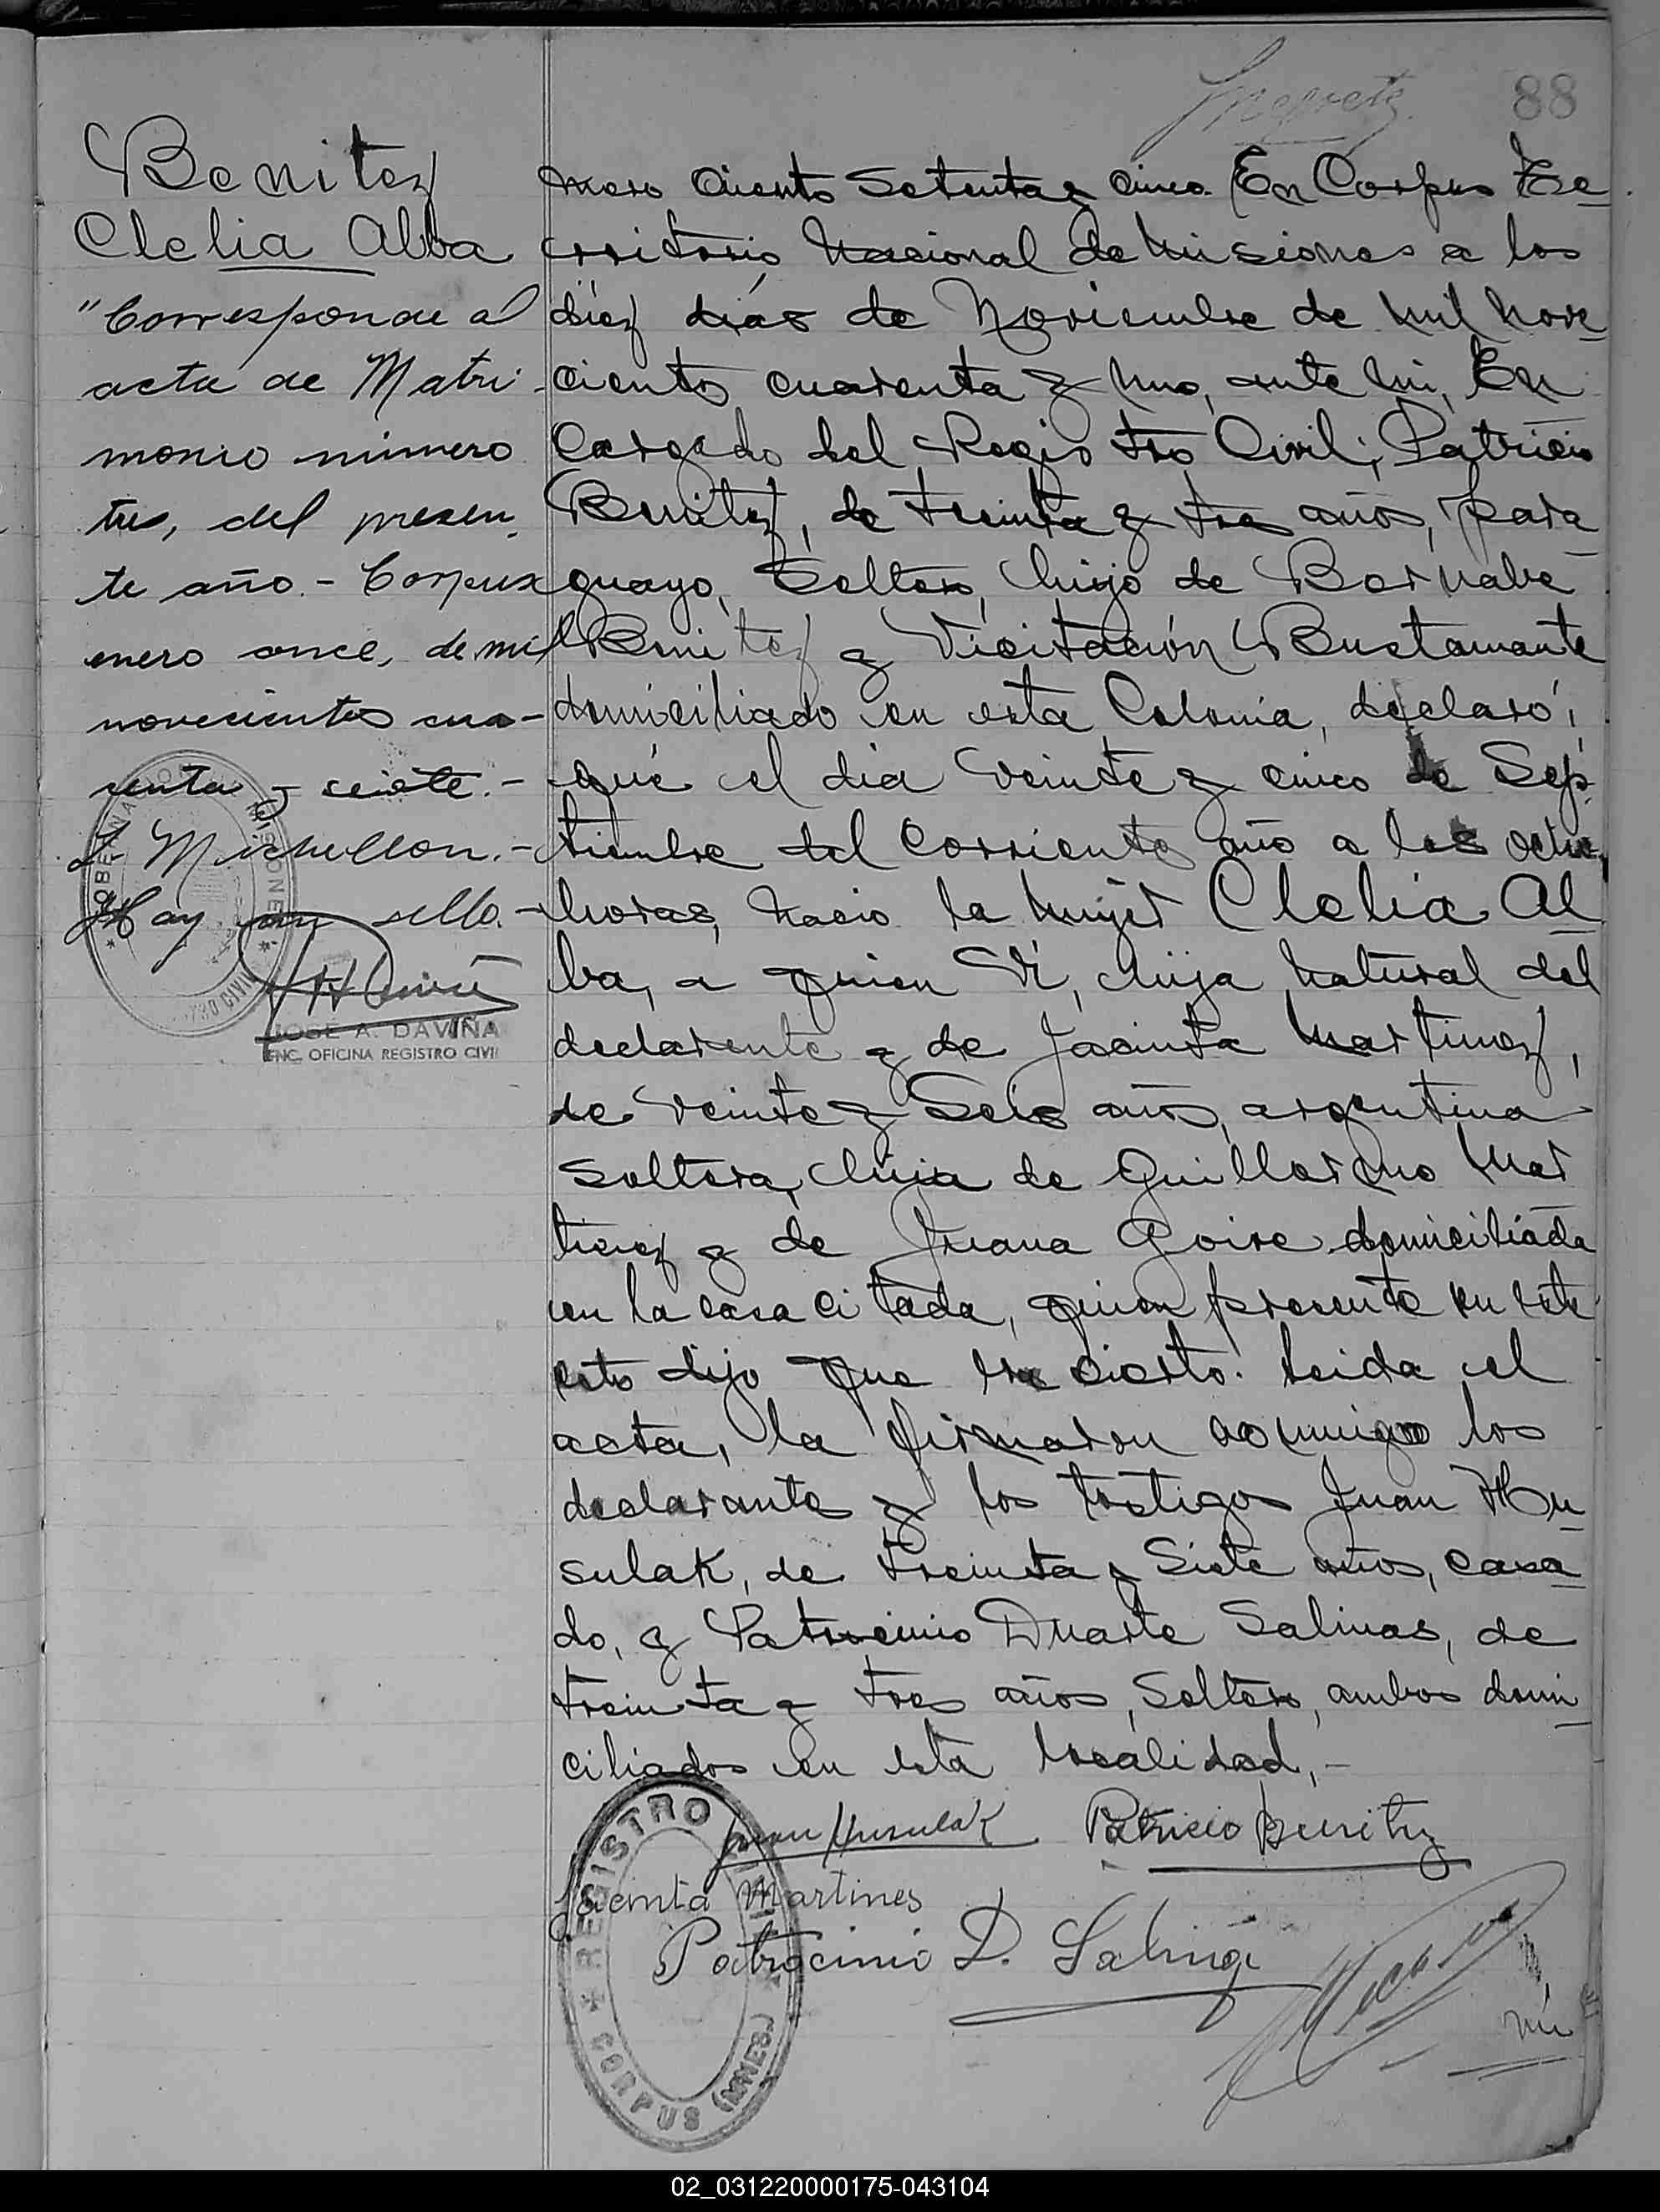 88
Benitez
Clelia Alba
"Corresponde al
acta de Matri-
monio número
tres, del presen-
te año.- Corpus
enero once, de mil
novecientos cua-
renta y seiete.-
L. Michellon.-
Hay un sello.-
JOSE A. DAVIÑA
ENC. OFICINA REGISTRO CIVIL
mero Ciento Setenta y cinco. En Corpus Te-
rritorio Nacional de Misiones a los
diez dias de Noviembre de mil nove-
cientos cuarenta y uno, ante mi, En
cargado del Registro Civil; Patricio
Benitez, de treinta y tres años, para-
guayo, Soltero, hijo de Bernabe
Benitez y Vicitación Bustamante
domiciliado en esta Colonia, declaró;
que el dia veinte y cinco de Sep-
tiembre del corriente año a las ocho
horas, nacio la mujer Clelia Al-
ba, a quien Ví, hija natural del
declarente y de Jacinta Martinez,
de veinte y Seis años, argentina
Soltera, hija de Guillermo Mar
tinez y de Juana Goire domiciliada
en la casa citada, quien presente en este
esto dijo que es cierto. Leida el
acta, la firmaron conmigo los
declarante y los testigos Juan Hu-
sulak, de treinta y Siete años, casa-
do, y Patrocinio Duarte Salinas, de
treinta y tres años, Soltero, ambos domi-
ciliados en esta localidad,-
Juan Husulak Patricio Benitez
Jacinta Martines
Patrocinio D. Salina
REGISTRO CIVIL
CORPUS (MNES.)
02_031220000175-043104